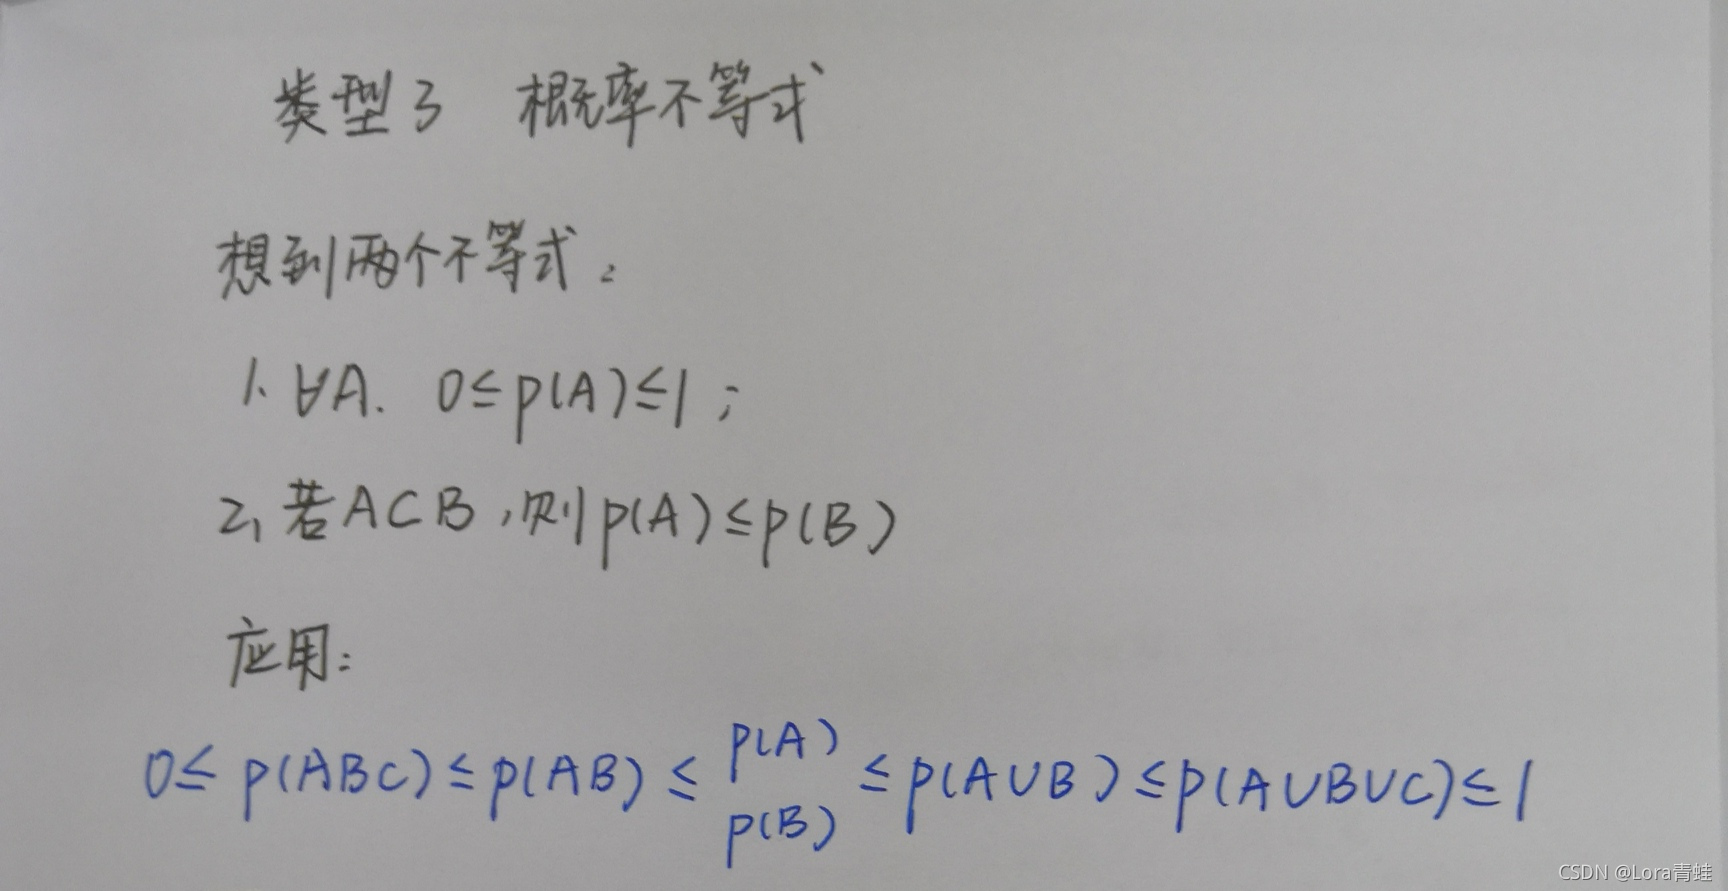 类型3 概率不等式
想到两个不等式:
1. ∀A. 0≤p(A)≤1;
2, 若A⊂B,则p(A)≤p(B)
应用:
0≤p(ABC)≤p(AB)≤ p(A) p(B) ≤p(A∪B)≤p(A∪B∪C)≤1
CSDN @Lora青蛙